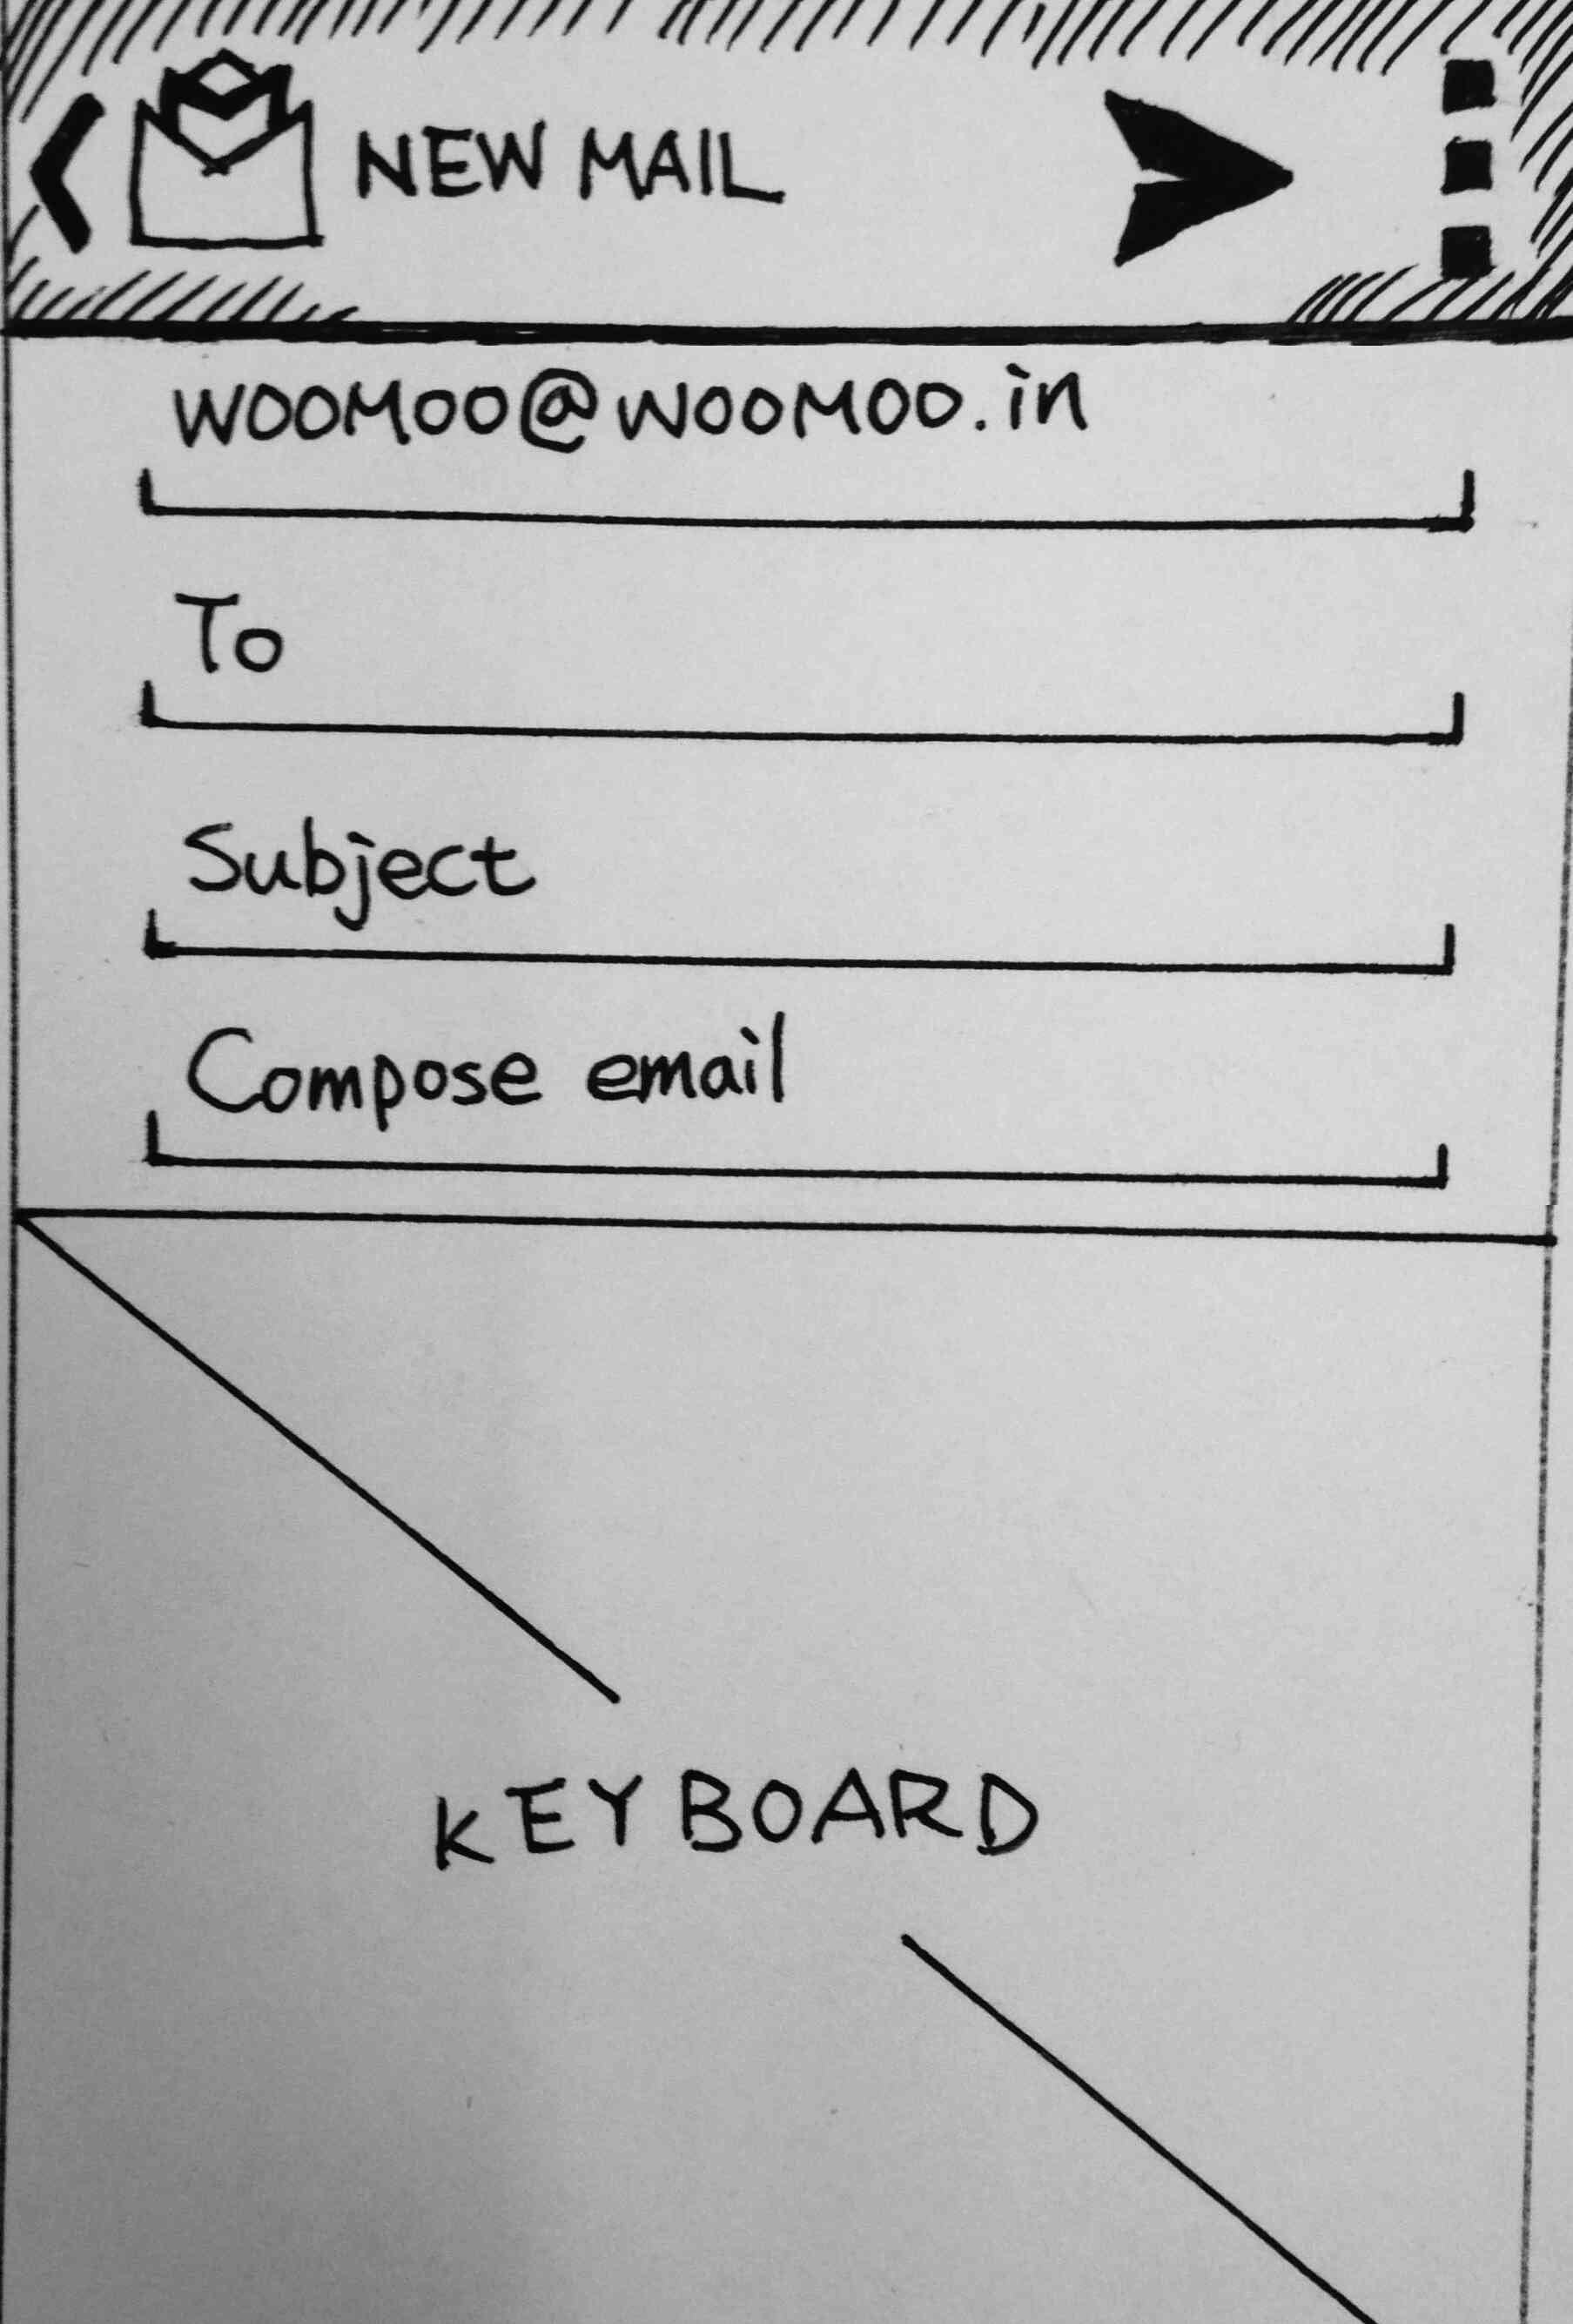 NEW MAIL
WOOMOO@WOOMOO.in
To
Subject
Compose email
KEYBOARD